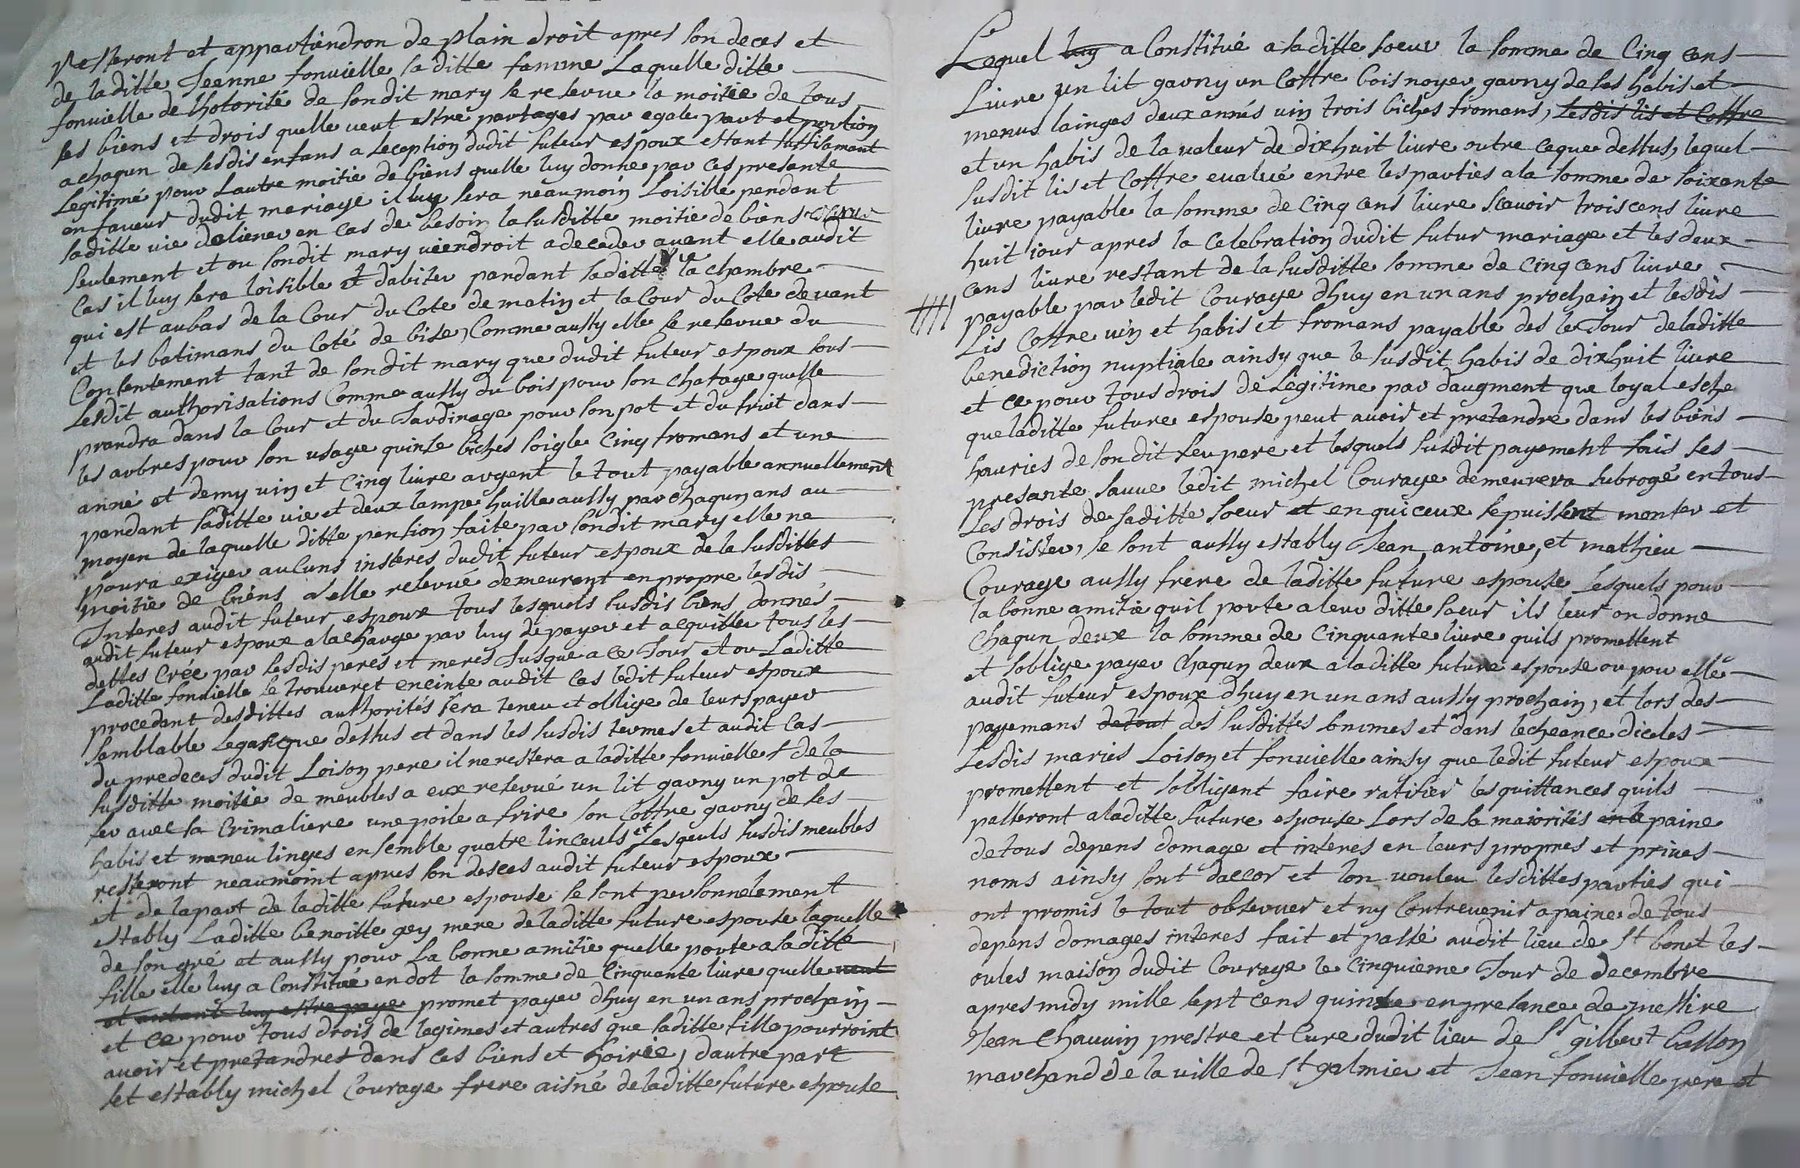 resteront et appartiendron de plain droit apres son deces et
de laditte Jeanne fonvielle sa ditte famme Laquelle ditte
fonvielle de lhotorité de sondit mary se reserve la moitée de tous
ses biens et drois quelle veut estre partages par egale part et portion
a chaqun de sesdis enfans a leception dudit futeur espoux estant suffisamant
Legitimé pour Lautre moitié de biens quelle luy donne par ces presante
en faveur dudit mariage il luy sera neaumoin Loisible pendant
saditte vie daliener en cas de besoin la susditte moitie de biens
seulement et ou sondit mary viendroit a deceder avent elle audit
cas il luy sera loisible et dabiter pandant saditte vie la chambre
qui est aubas de la Cour du Cote de matin et la Cour du Cote devant
et les batimans du Coté de bise, Comme aussy elle se reserve du
Consentement tant de sondit mary que dudit futeur espoux sous
Lesdit authorisations Comme aussy du bois pour son chofage quelle
prandra dans la Cour et du Jardinage pour son pot et du fruit dans
les arbres pour son usage quinse biches soigle Cinq fromans et une
anné et demy vin et Cinq livre argent le tout payable annuellement
pandant saditte vie et deux lampe huille aussy par chaqun ans au
moyen de laquelle ditte pention faite par sondit mary elle ne
poura exiger auCuns insteres dudit futeur espoux de la susdittes
moitie de biens a elle reserve demeurent en propre lesdis
Interes audit futeur espoux tous lesquels susdis biens donnes
audit futeur espoux a la charge par luy de payer et acquitter tous les
dettes Crée par lesdis peres et meres Jusque a ce Jour et ou Laditte
Laditte fonvielle se trouveret eneinte audit cas ledit futeur espoux
procedant desdittes authorités sera teneu et oblige de leurs payer
semblable legat que dessus et dans les susdis termes et audit cas
du predeces dudit Loison pere il ne restera a laditte fonvielle de la
susditte moitie de meubles a eux reservé un lit garny un pot de
fer avec sa Crimaliere une poile a frire son Coffre garny de ses
habis et meneu linges ensemble quatre linceuls et Lesqeuls susdis meubles
resteront neaumoint apres son desces audit futeur espoux
et de la part de laditte future espouse se sont personnelement
estably Laditte benoitte gey mere de laditte future espouse laquelle
de son gré et aussy pour La bonne amitie quelle porte a laditte
fille elle luy a Constitué en dot la somme de Cinquante livre quelle veut
et entant luy estre paye promet payer dhuy en un ans prochain
et ce pour tous drois de legimes et autres que saditte fille pourroint
avoir et pretandres dans ces biens et hoirie, dautre part
set estably michel Courage frere aisné de laditte future espouse
Lequel luy a Constitué a saditte soeur la somme de Cinq cens
Livre un lit garny un Coffre bois noyer garny de ses habis et
menus lainges deux annés vin trois biches fromans, Lesdis lis et Coffre
et un habis de la valeur de dixhuit livre outre ceque dessus, lequel
susdit lis et Coffre evalué entre les parties a la somme de soixante
livre payable la somme de Cinq cens livre scavoir trois cens livre
huit jour apres la celebration dudit futur mariage et les deux
cens livre restant de la susditte somme de cinq cens livre
payable par ledit Courage dhuy en un ans prochain et lesdis
Lis Coffre vin et habis et fromans payable des le Jour de laditte
benediction nuptiale ainsy que le susdit habis de dixhuit livre
et ce pour tous drois de Legitime par daugment que loyal esche
que laditte future espouse peut avoir et pretandre dans les biens
houries de son dit feu pere et lesquels susdit payement fais ses
presante sauve ledit michel Courage demeurera subrogé en tous
Les drois de saditte soeur et en quiceux se puissent monter et
Consister, se sont aussy estably Jean, antoine, et mathieu
Courage aussy frere de laditte future espouse lesquels pour
la bonne amitie quil porte a leur ditte soeur ils leur on donne
chaqun deux la somme de cinquante livre quils promettent
et soblige payer chaqun deux a laditte future espouse ou pour elle
audit futeur espoux dhuy en un ans aussy prochain, et lors des
payemans de tout des susdittes sommes et dans lecheance diceles
Lesdis maries Loison et fonvielle ainsy que ledit futeur espoux
promettent et sobligent faire ratifier les quittances quils
passeront a laditte future espouse Lors de sa maiorités en la paine
de tous depens domage et interes en leurs propres et prives
noms ainsy sont daccor et lon vouleu lesdittes parties qui
ont promis le tout observer et ny Contrevenir a paine de tous
depens domages interes fait et passé audit lieu de St bonet les
oules maison dudit Courage le cinquieme Jour de decembre
apres midy mille sept cens quinse en presance de messire
Jean Chauvin prestre et Cure dudit lieu de Sr gilbert
marchand de la ville de St galmier et Jean fonvielle pere et